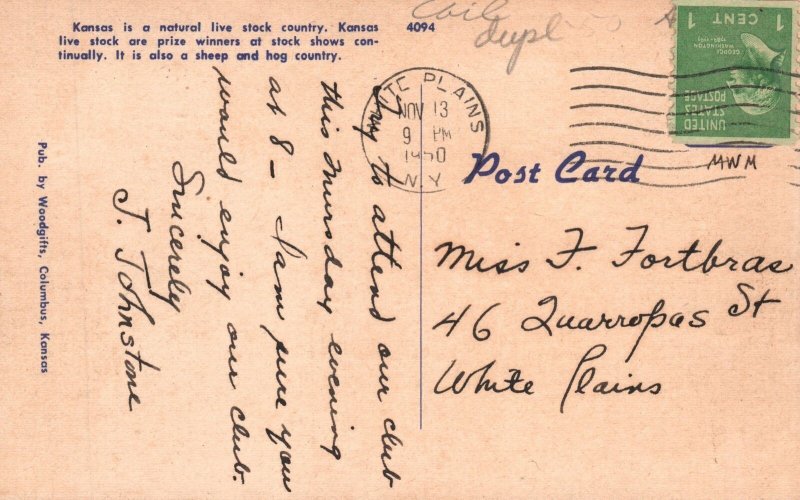 Kansas is a natural live stock country. Kansas
live stock are prize winners at stock shows con-
tinually. It is also a sheep and hog country.
4094
Coil
dupl
1 CENT 1
GEORGE WASHINGTON
1789-1797
UNITED
STATES
POSTAGE
WHITE PLAINS
NOV 13
9 PM
1950
N.Y.
MWM
Post Card
Pub. by Woodgifts, Columbus, Kansas
Try to attend our club
this Thursday evening
at 8 – I am sure you
would enjoy our club.
Sincerely
J. Johnstone
Miss F. Fortbras
46 Quarropas St
White Plains